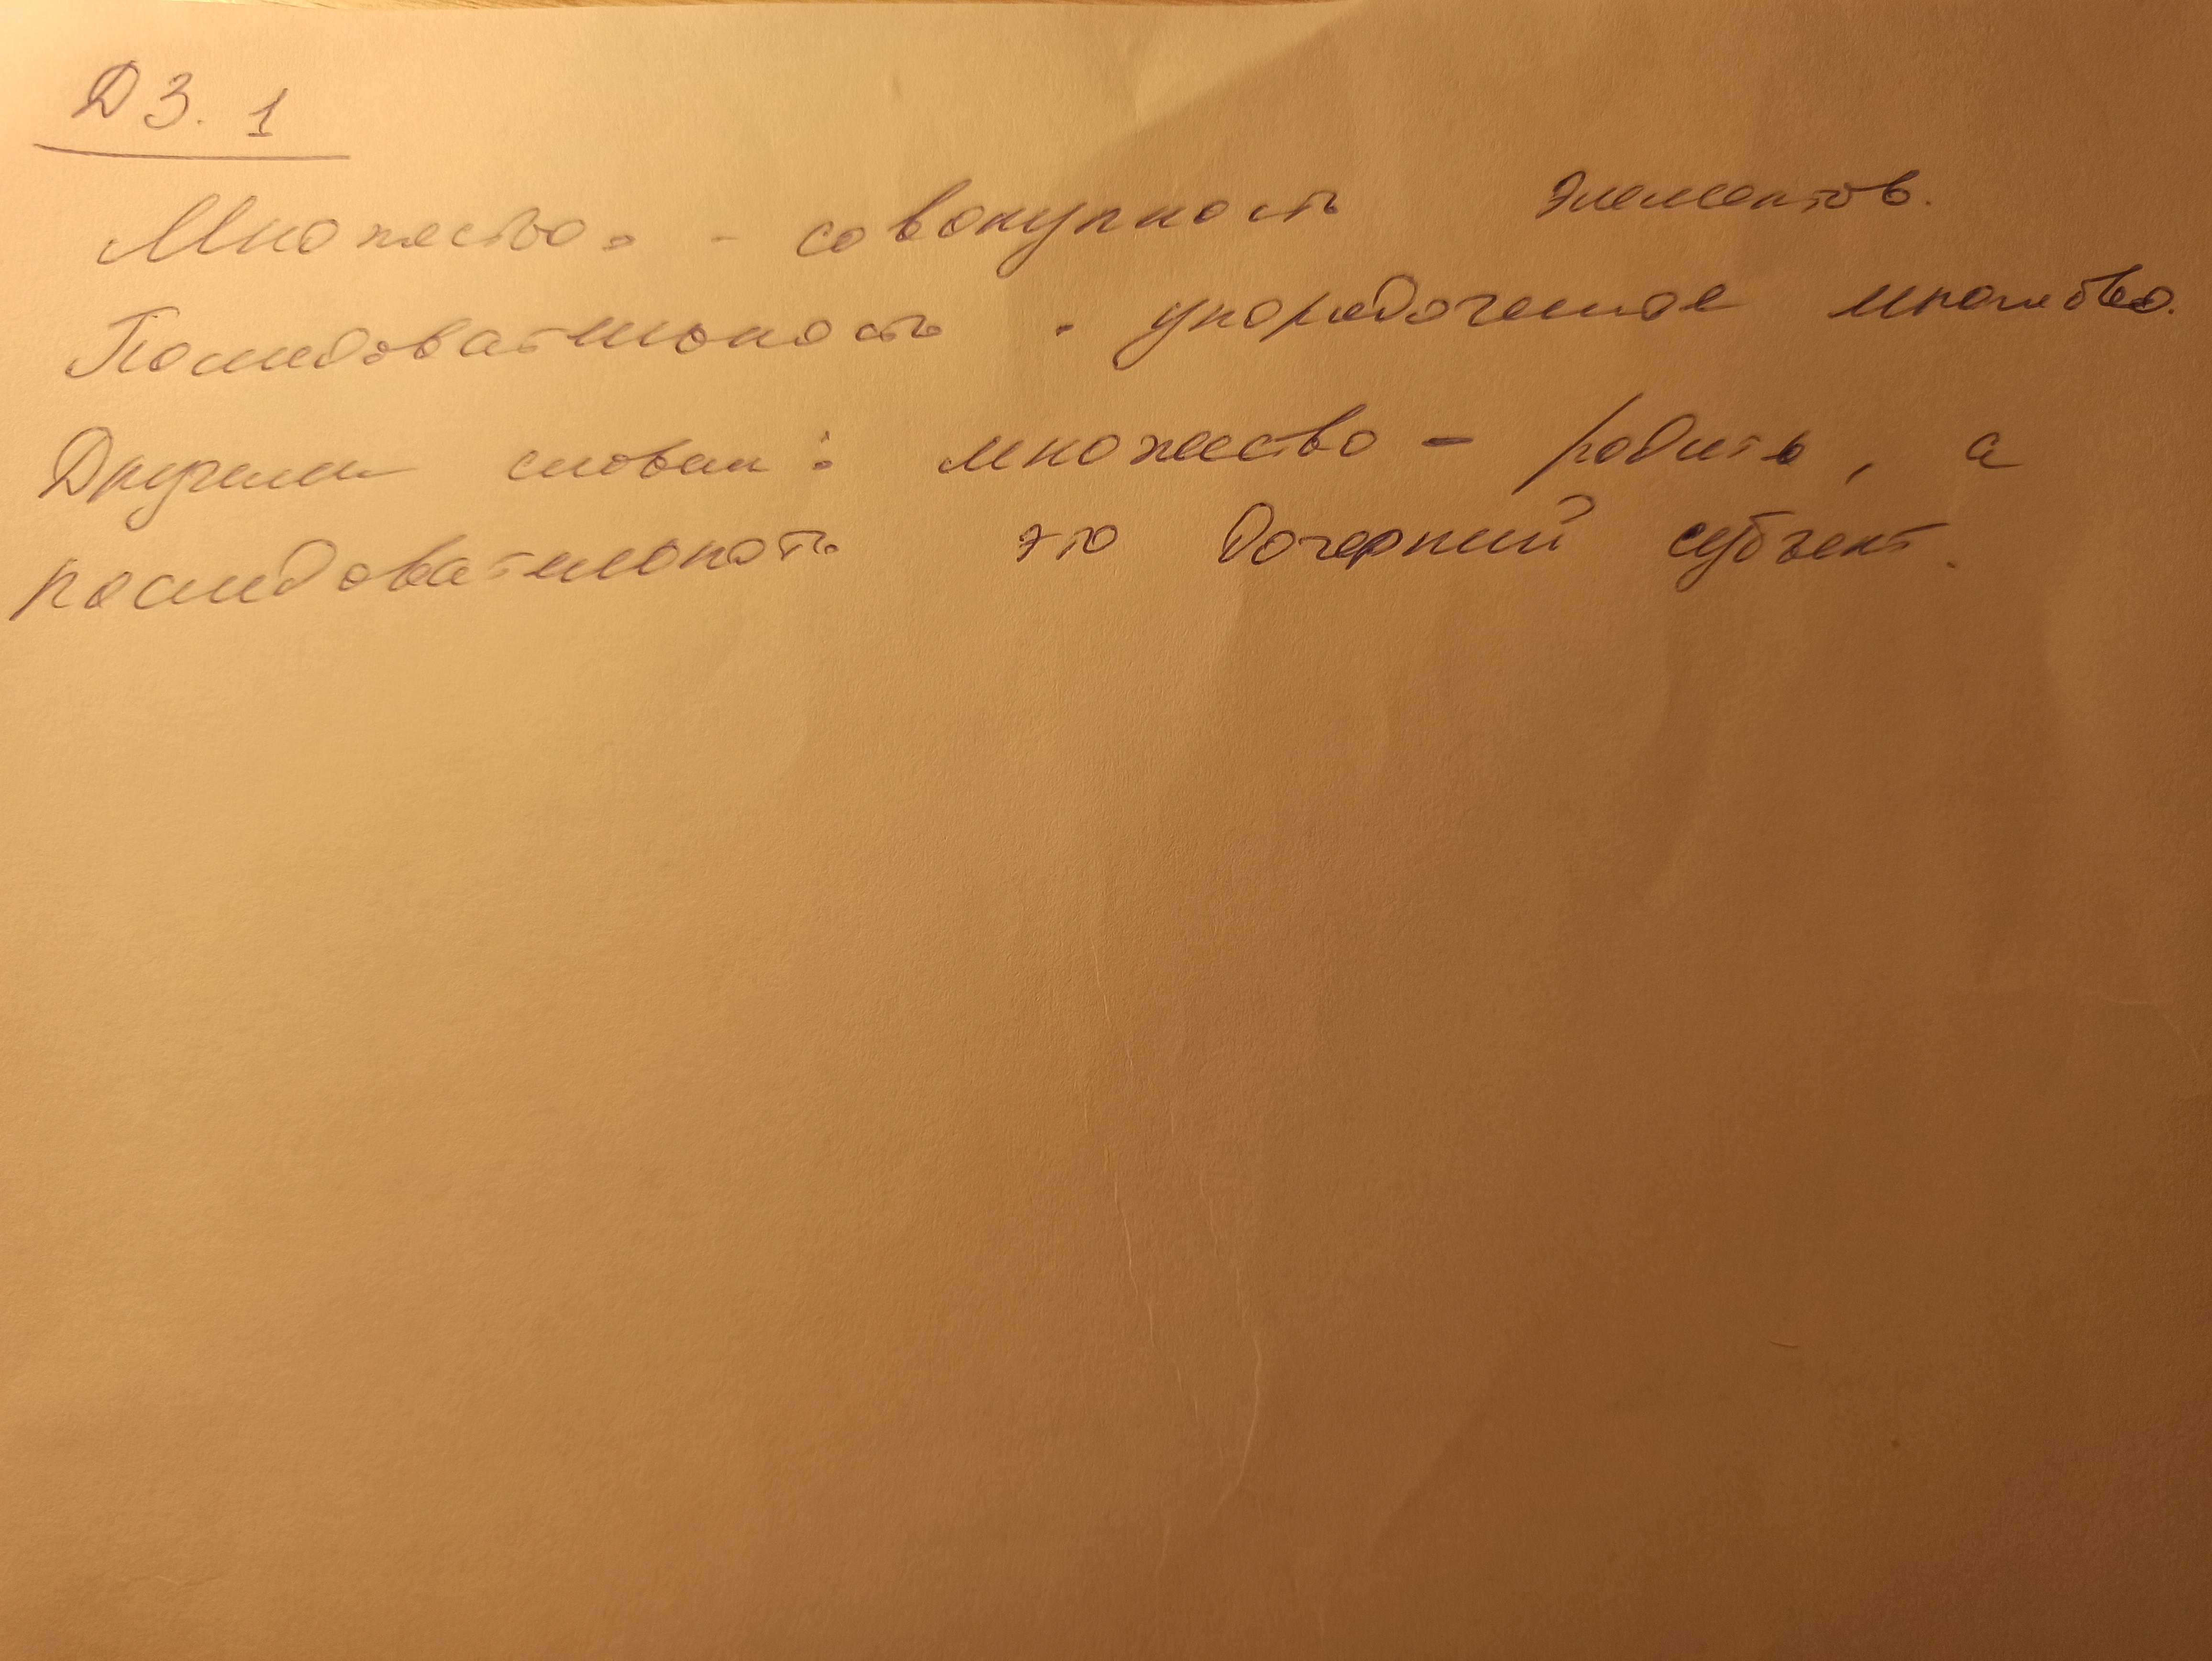 ДЗ. 1
Множество. - совокупность элементов.
Последовательность - упорядоченное множество.
Другими словами: множество - родитель, а
последовательность это дочерний субъект.